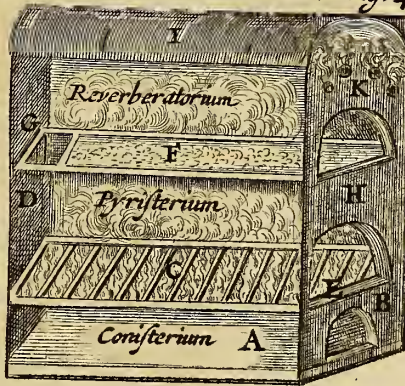 I
Reverberatorium
K
G
F
D
Pyriſterium
H
C
E
B
Coniſterium A